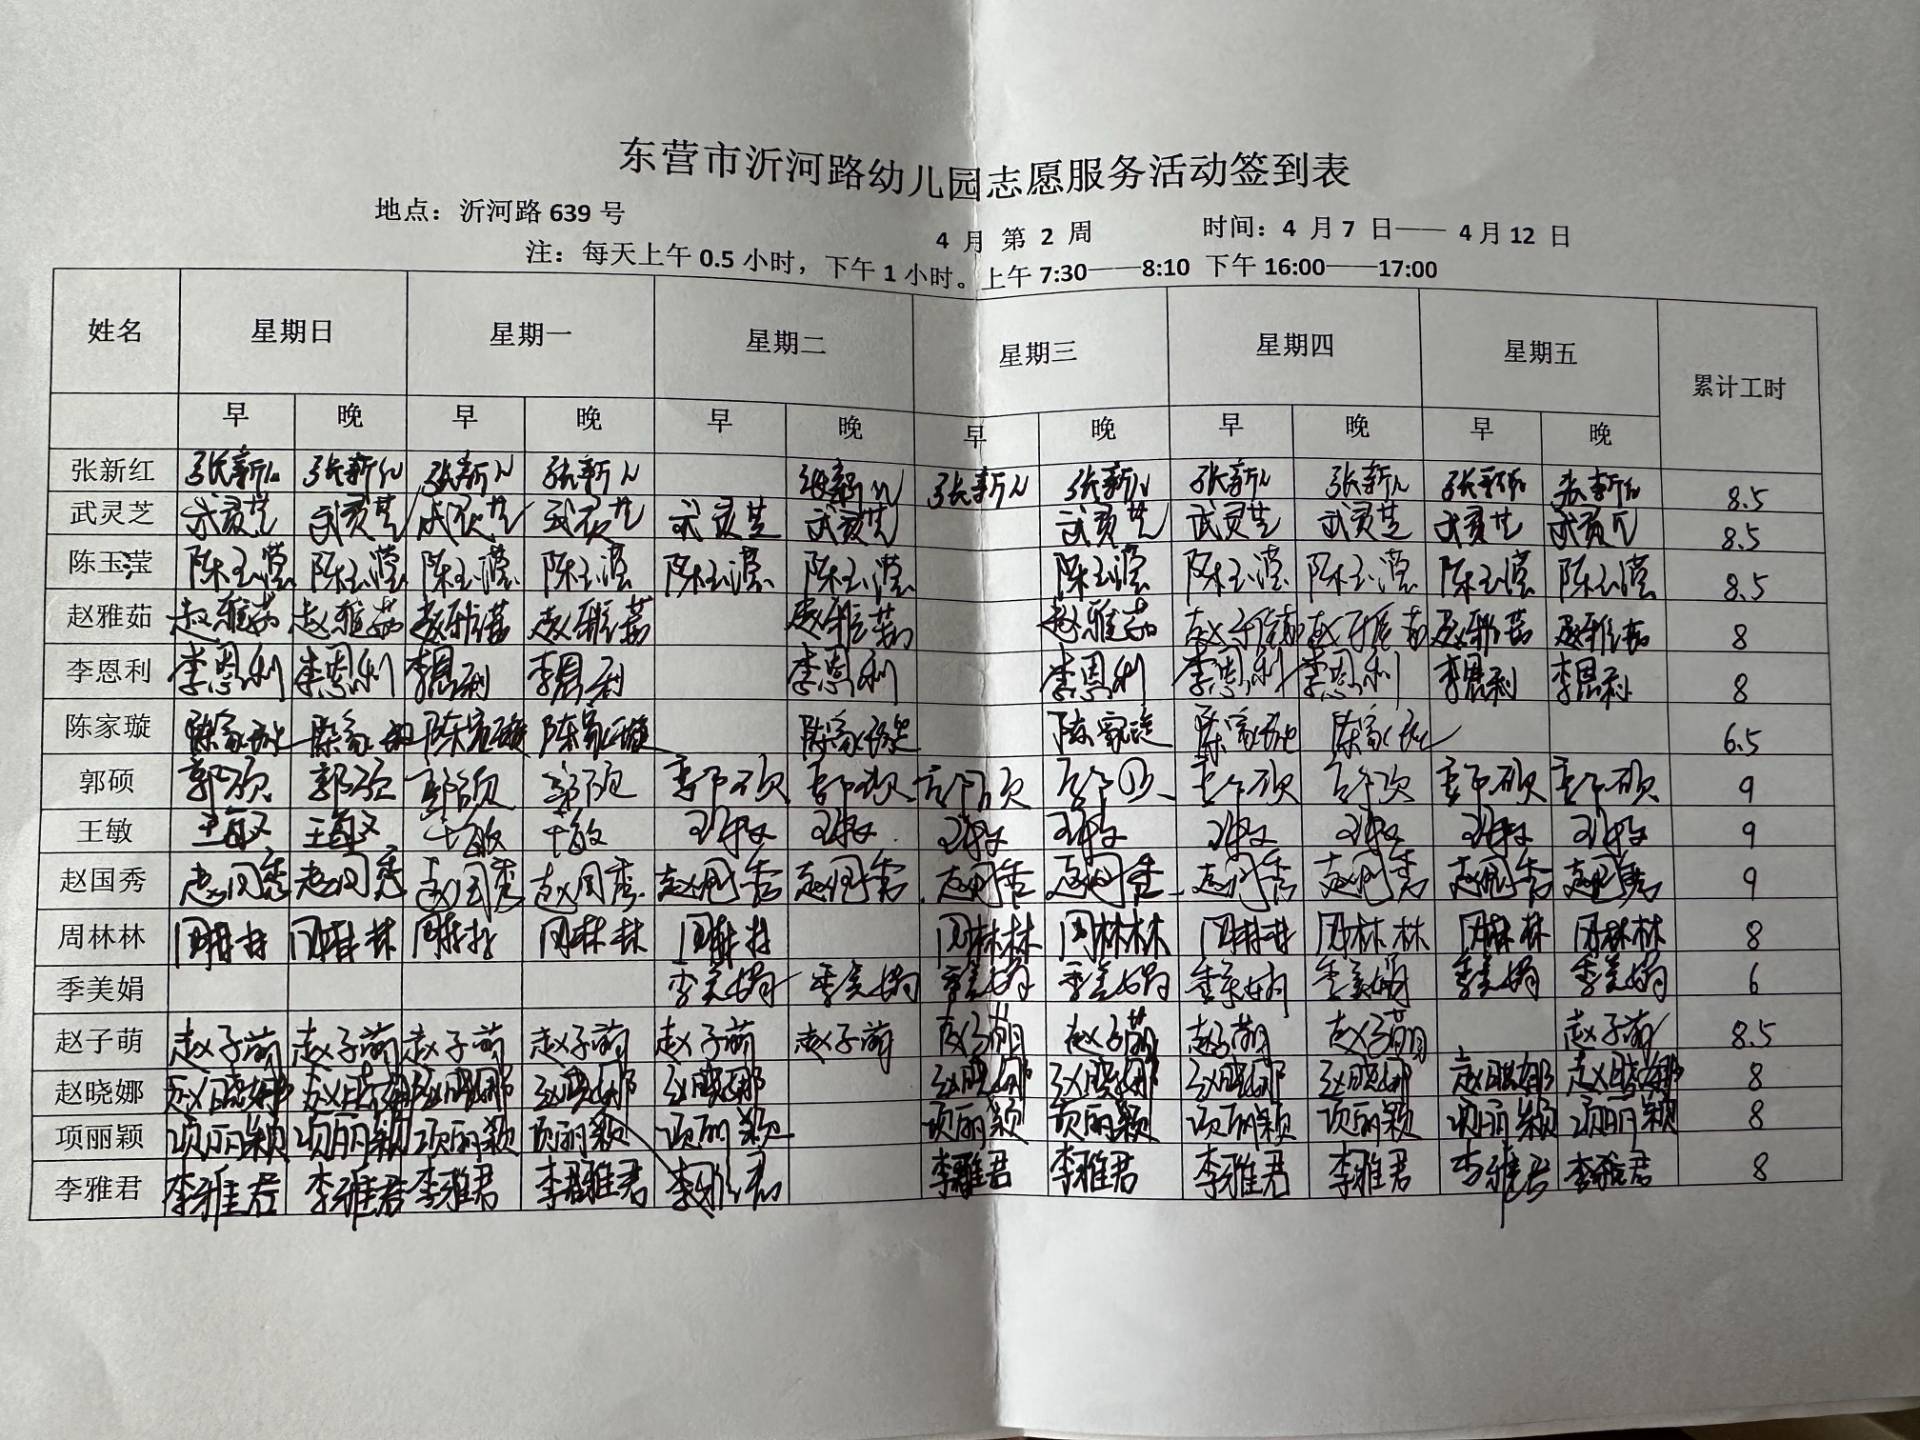 东营市沂河路幼儿园志愿服务活动签到表
地点：沂河路 639 号
4 月 第 2 周 时间：4 月 7 日—— 4 月 12 日
注：每天上午 0.5 小时，下午 1 小时。上午 7:30——8:10 下午 16:00——17:00
姓名 星期日 星期一 星期二 星期三 星期四 星期五 累计工时
早 晚 早 晚 早 晚 早 晚 早 晚 早 晚
张新红 张新红 张新红 张新红 张新红 张新红 张新红 张新红 张新红 张新红 张新红 张新红 8.5
武灵芝 武灵芝 武灵芝 武灵芝 武灵芝 武灵芝 武灵芝 武灵芝 武灵芝 武灵芝 武灵芝 武灵芝 8.5
陈玉滢 陈玉滢 陈玉滢 陈玉滢 陈玉滢 陈玉滢 陈玉滢 陈玉滢 陈玉滢 陈玉滢 陈玉滢 陈玉滢 8.5
赵雅茹 赵雅茹 赵雅茹 赵雅茹 赵雅茹 赵雅茹 赵雅茹 赵雅茹 赵雅茹 赵雅茹 赵雅茹 8
李恩利 李恩利 李恩利 李恩利 李恩利 李恩利 李恩利 李恩利 李恩利 李恩利 李恩利 8
陈家璇 陈家璇 陈家璇 陈家璇 陈家璇 陈家璇 陈家璇 陈家璇 陈家璇 6.5
郭硕 郭硕 郭硕 郭硕 郭硕 郭硕 郭硕 郭硕 郭硕 郭硕 郭硕 郭硕 郭硕 9
王敏 王敏 王敏 王敏 王敏 王敏 王敏 王敏 王敏 王敏 王敏 王敏 王敏 9
赵国秀 赵国秀 赵国秀 赵国秀 赵国秀 赵国秀 赵国秀 赵国秀 赵国秀 赵国秀 赵国秀 赵国秀 赵国秀 9
周林林 周林林 周林林 周林林 周林林 周林林 周林林 周林林 周林林 周林林 周林林 周林林 8
季美娟 季美娟 季美娟 季美娟 季美娟 季美娟 季美娟 季美娟 季美娟 6
赵子萌 赵子萌 赵子萌 赵子萌 赵子萌 赵子萌 赵子萌 赵子萌 赵子萌 赵子萌 赵子萌 赵子萌 8.5
赵晓娜 赵晓娜 赵晓娜 赵晓娜 赵晓娜 赵晓娜 赵晓娜 赵晓娜 赵晓娜 赵晓娜 赵晓娜 赵晓娜 8
项丽颖 项丽颖 项丽颖 项丽颖 项丽颖 项丽颖 项丽颖 项丽颖 项丽颖 项丽颖 项丽颖 项丽颖 8
李雅君 李雅君 李雅君 李雅君 李雅君 李雅君 李雅君 李雅君 李雅君 李雅君 李雅君 李雅君 8